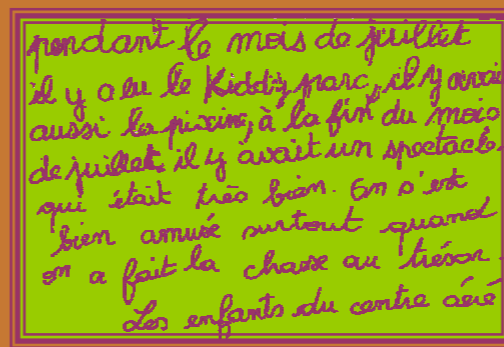 pendant le mois de juillet
il y a eu le Kiddy parc, il y avai
aussi la piscine, à la fin du mois
de juillet, il y avait un spectacle
qui était très bien. On s'est
bien amusé surtout quand
on a fait la chasse au trésor.
Les enfants du centre aéré